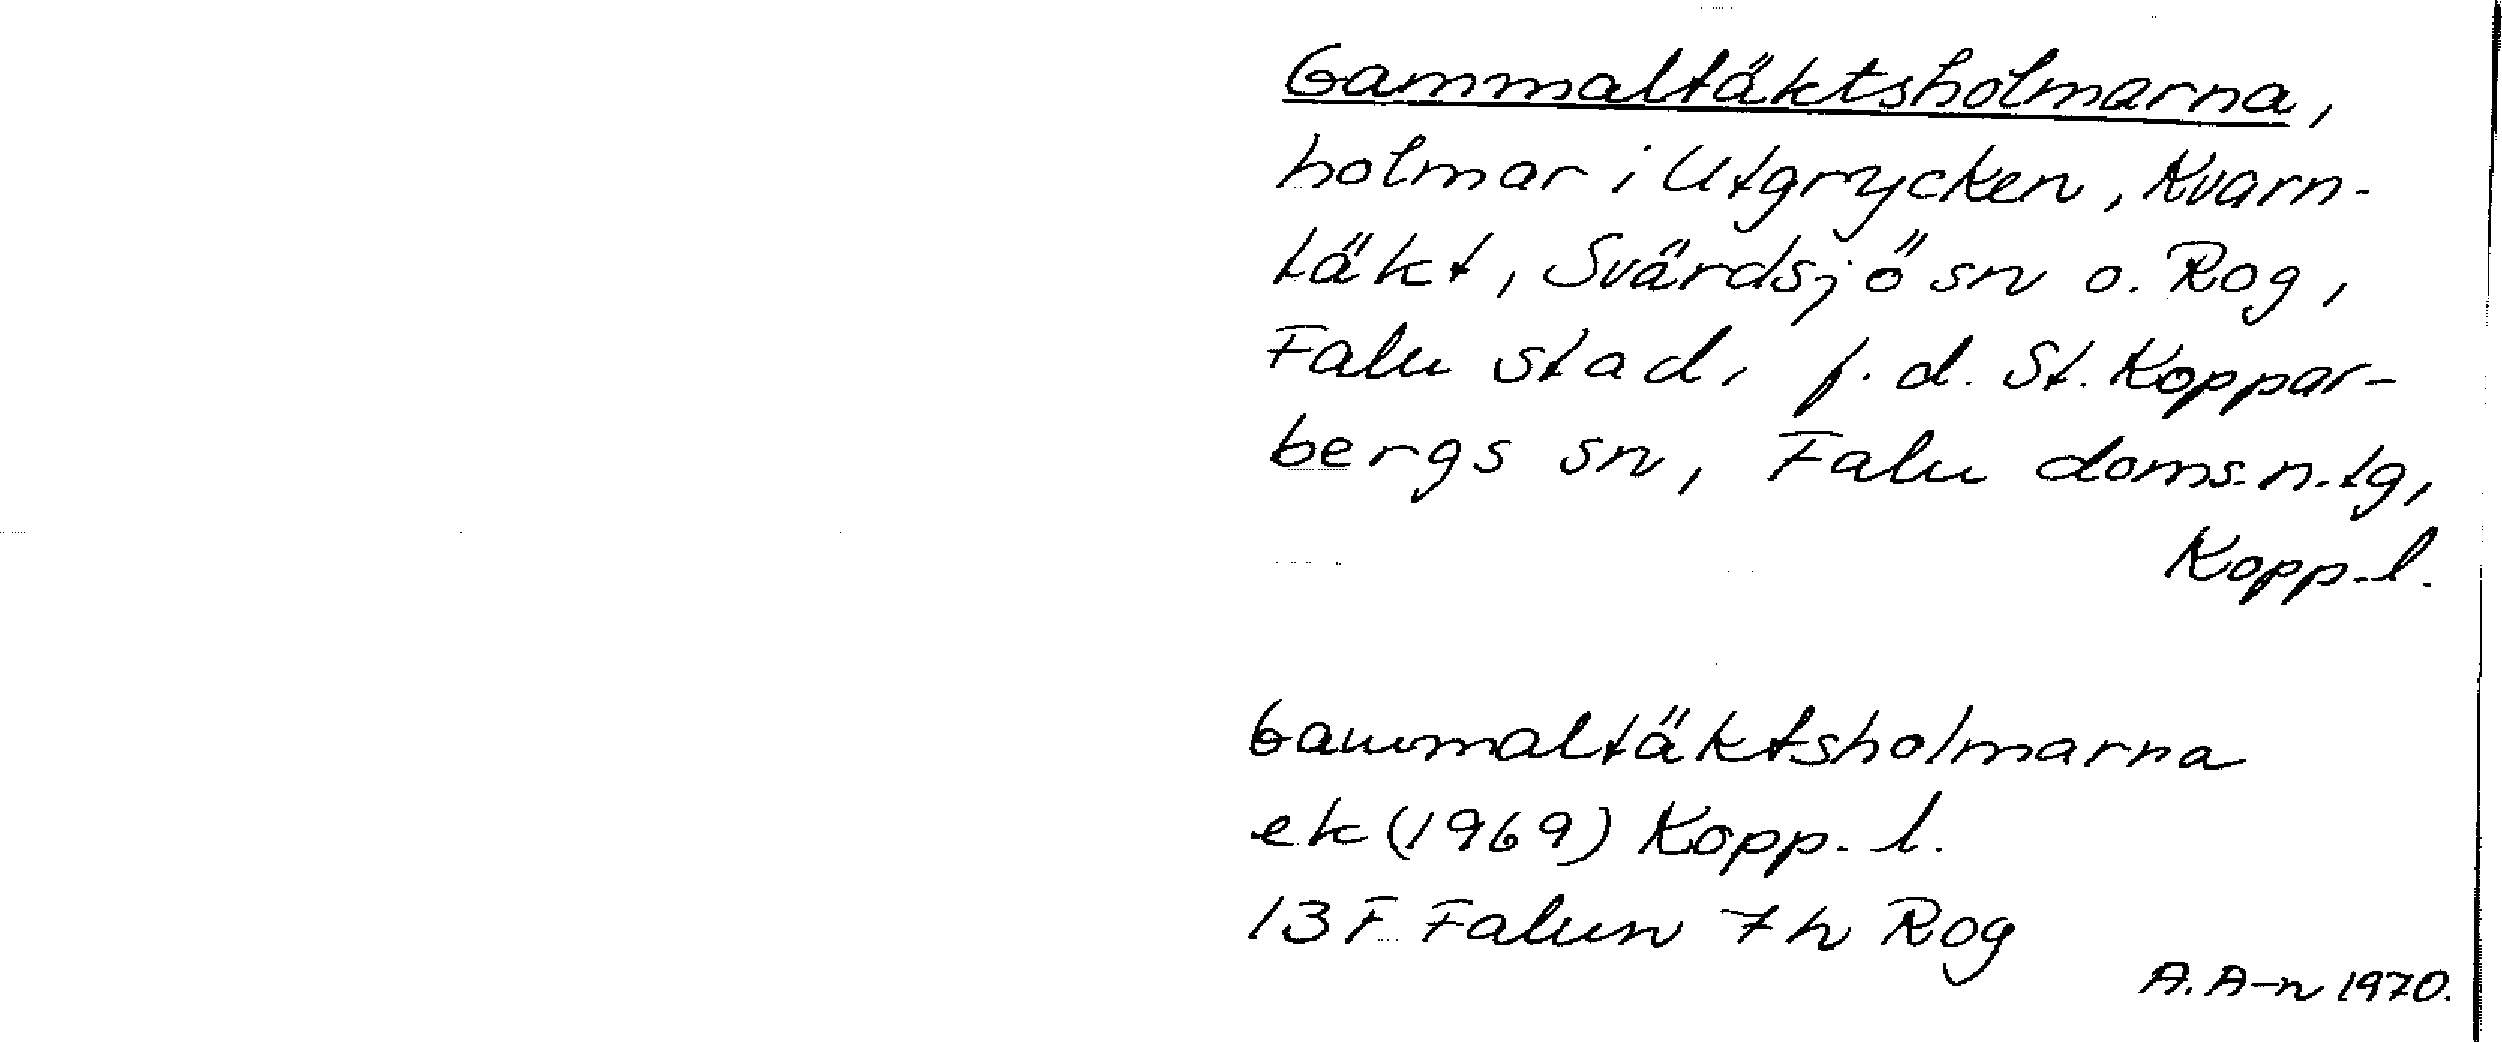 Gammaltäktsholmarna,
holmar i Utgrycken, Kvarn-
täkt, Svärdsjö sn o. Rog,
Falu stad, f.d. St. Koppar-
bergs sn, Falu doms.n.tg,
Kopp.l.
Gammaltäktsholmarna
ek (1969) Kopp.l.
13 F Falun 7 h Rog
A. A-n 1970.